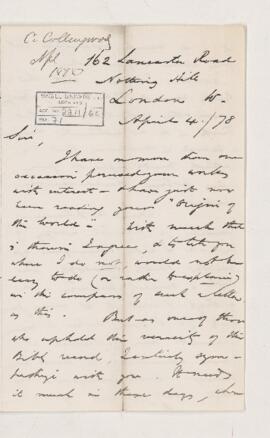 C. Collingwood
Apl
1878
162 Lancaster Road
Notting Hill
London W.
April 4./78
Sir,
I have on more than one
occasion perused your works
with interest - I have just now
been reading your "Origin of
this world".  With much that
is therein I agree, & to tell you
where I do not, would not be
easy to do (or rather to explain)
in the compass of such a letter
as this.  But as one of those
who uphold the veracity of the
Bible record, I entirely sym-
pathize with you.
it much in these days, when